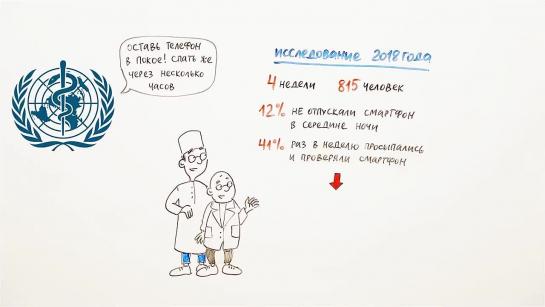 ОСТАВЬ ТЕЛЕФОН
В ПОКОЕ! СПАТЬ ЖЕ
ЧЕРЕЗ НЕСКОЛЬКО
ЧАСОВ
ИССЛЕДОВАНИЕ 2018 ГОДА
4 НЕДЕЛИ 815 ЧЕЛОВЕК
12% НЕ ОТПУСКАЛИ СМАРТФОН
В СЕРЕДИНЕ НОЧИ
41% РАЗ В НЕДЕЛЮ ПРОСЫПАЛИСЬ
И ПРОВЕРЯЛИ СМАРТФОН